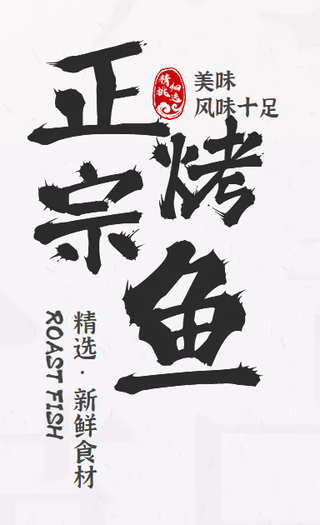 正宗
烤鱼
精挑细选
美味
风味十足
精选·新鲜食材
ROAST FISH